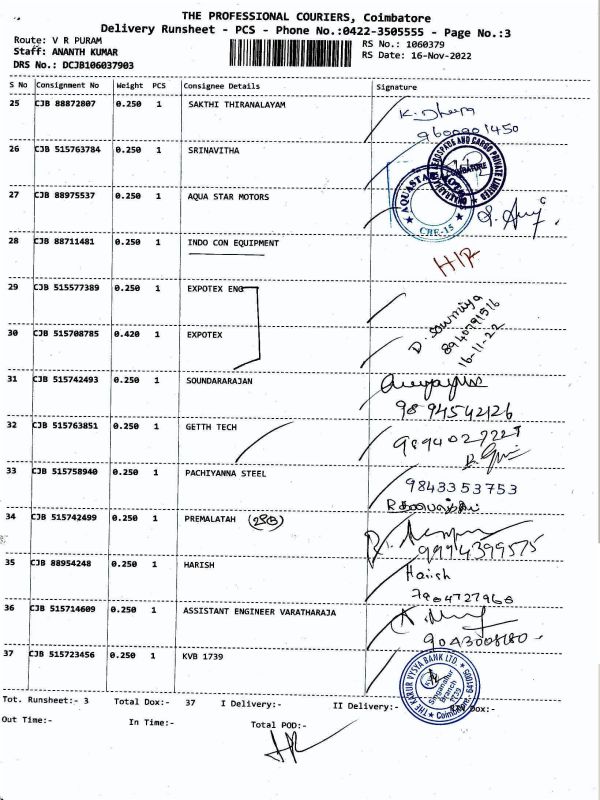 THE PROFESSIONAL COURIERS, Coimbatore
Delivery Runsheet - PCS - Phone No.:0422-3505555 - Page No.:3
Route: V R PURAM
RS No.: 1060379
Staff: ANANTH KUMAR
RS Date: 16-Nov-2022
DRS No.: DCJB106037903
S No Consignment No Weight PCS Consignee Details Signature
25 CJB 88872807 0.250 1 SAKTHI THIRANALAYAM
26 CJB 515763784 0.250 1 SRINAVITHA
COIMBATORE
27 CJB 88975537 0.250 1 AQUA STAR MOTORS
AQUASTAR MOTORS
CBE-15
28 CJB 88711481 0.250 1 INDO CON EQUIPMENT
29 CJB 515577389 0.250 1 EXPOTEX ENG
D. Sowmiya
8940791516
16-11-22
30 CJB 515708785 0.420 1 EXPOTEX
31 CJB 515742493 0.250 1 SOUNDARARAJAN
9894542126
32 CJB 515763851 0.250 1 GETTH TECH
33 CJB 515758940 0.250 1 PACHIYANNA STEEL
9843353753
34 CJB 515742499 0.250 1 PREMALATAH
9994399575
35 CJB 88954248 0.250 1 HARISH
Harish
7904727966
36 CJB 515714609 0.250 1 ASSISTANT ENGINEER VARATHARAJA
37 CJB 515723456 0.250 1 KVB 1739
THE KARUR VYSYA BANK LTD.
Singanallur
Branch
1739
Coimbatore - 641005
Tot. Runsheet:- 3 Total Dox:- 37 I Delivery:- II Delivery:- Dox:-
Out Time:- In Time:- Total POD:-